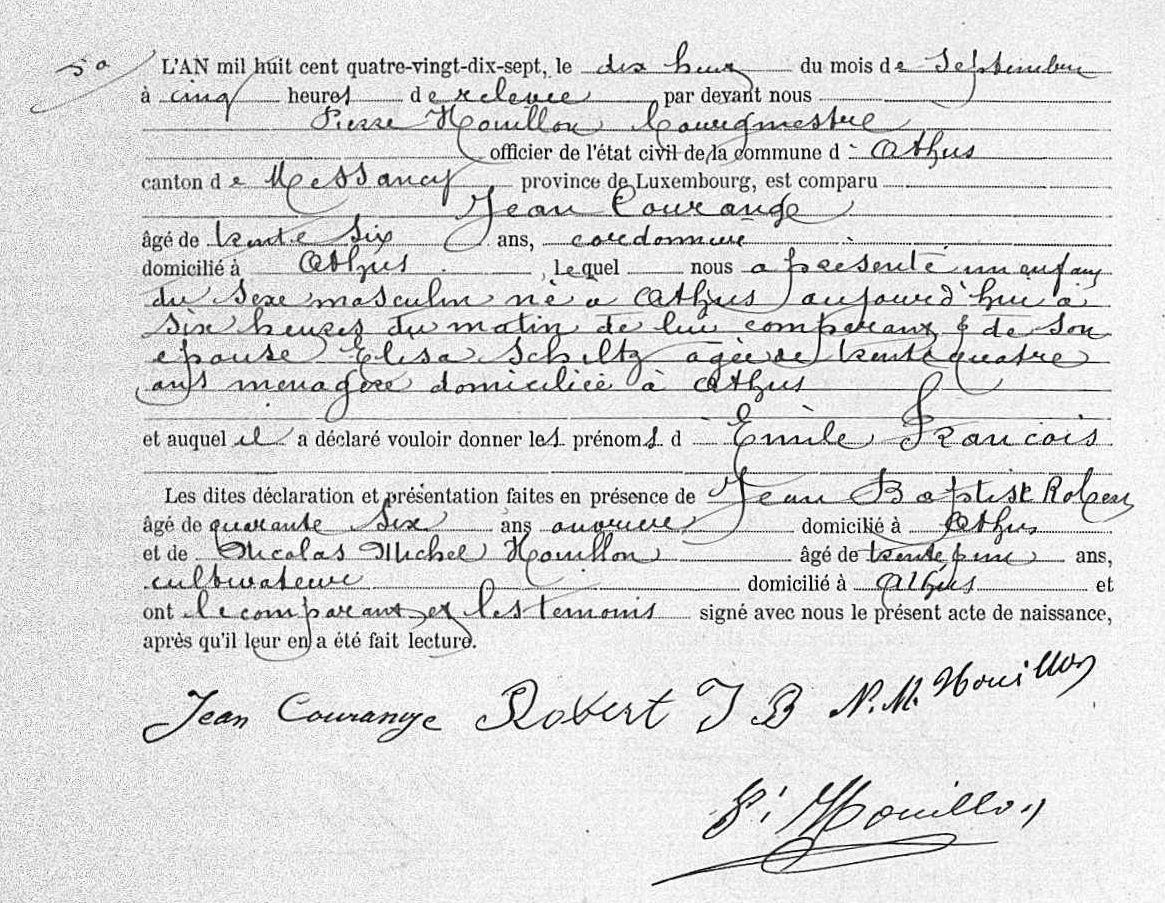 L'AN mil huit cent quatre-vingt-dix-sept, le dix huit du mois de Septembre
à cinq heures de relevée par devant nous
Pierre Houillon bourgmestre
officier de l'état civil de la commune d' Athus
canton de Messancy province de Luxembourg, est comparu
Jean Courange
âgé de trente six ans, cordonnier
domicilié à Athus, lequel nous a présenté un enfant
du sexe masculin né a Athus aujourd'hui à
six heures du matin de lui comparant & de son
épouse Elisa Schiltz agée de trente quatre
ans menagère domiciliée à Athus
et auquel il a déclaré vouloir donner les prénoms d' Emile François
Les dites déclaration et présentation faites en présence de Jean Baptiste Robert
âgé de quarante six ans ouvrier domicilié à Athus
et de Nicolas Michel Houillon âgé de trente ans,
cultivateur domicilié à Athus et
ont le comparant et les temoins signé avec nous le présent acte de naissance,
après qu'il leur en a été fait lecture.
Jean Courange Robert J B N. M. Houillon
P. Houillon